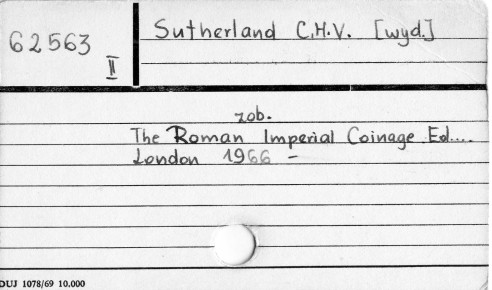 62563
II
Sutherland C.H.V. [wyd.]
zob.
The Roman Imperial Coinage. Ed....
London 1966 -
DUJ 1078/69 10.000